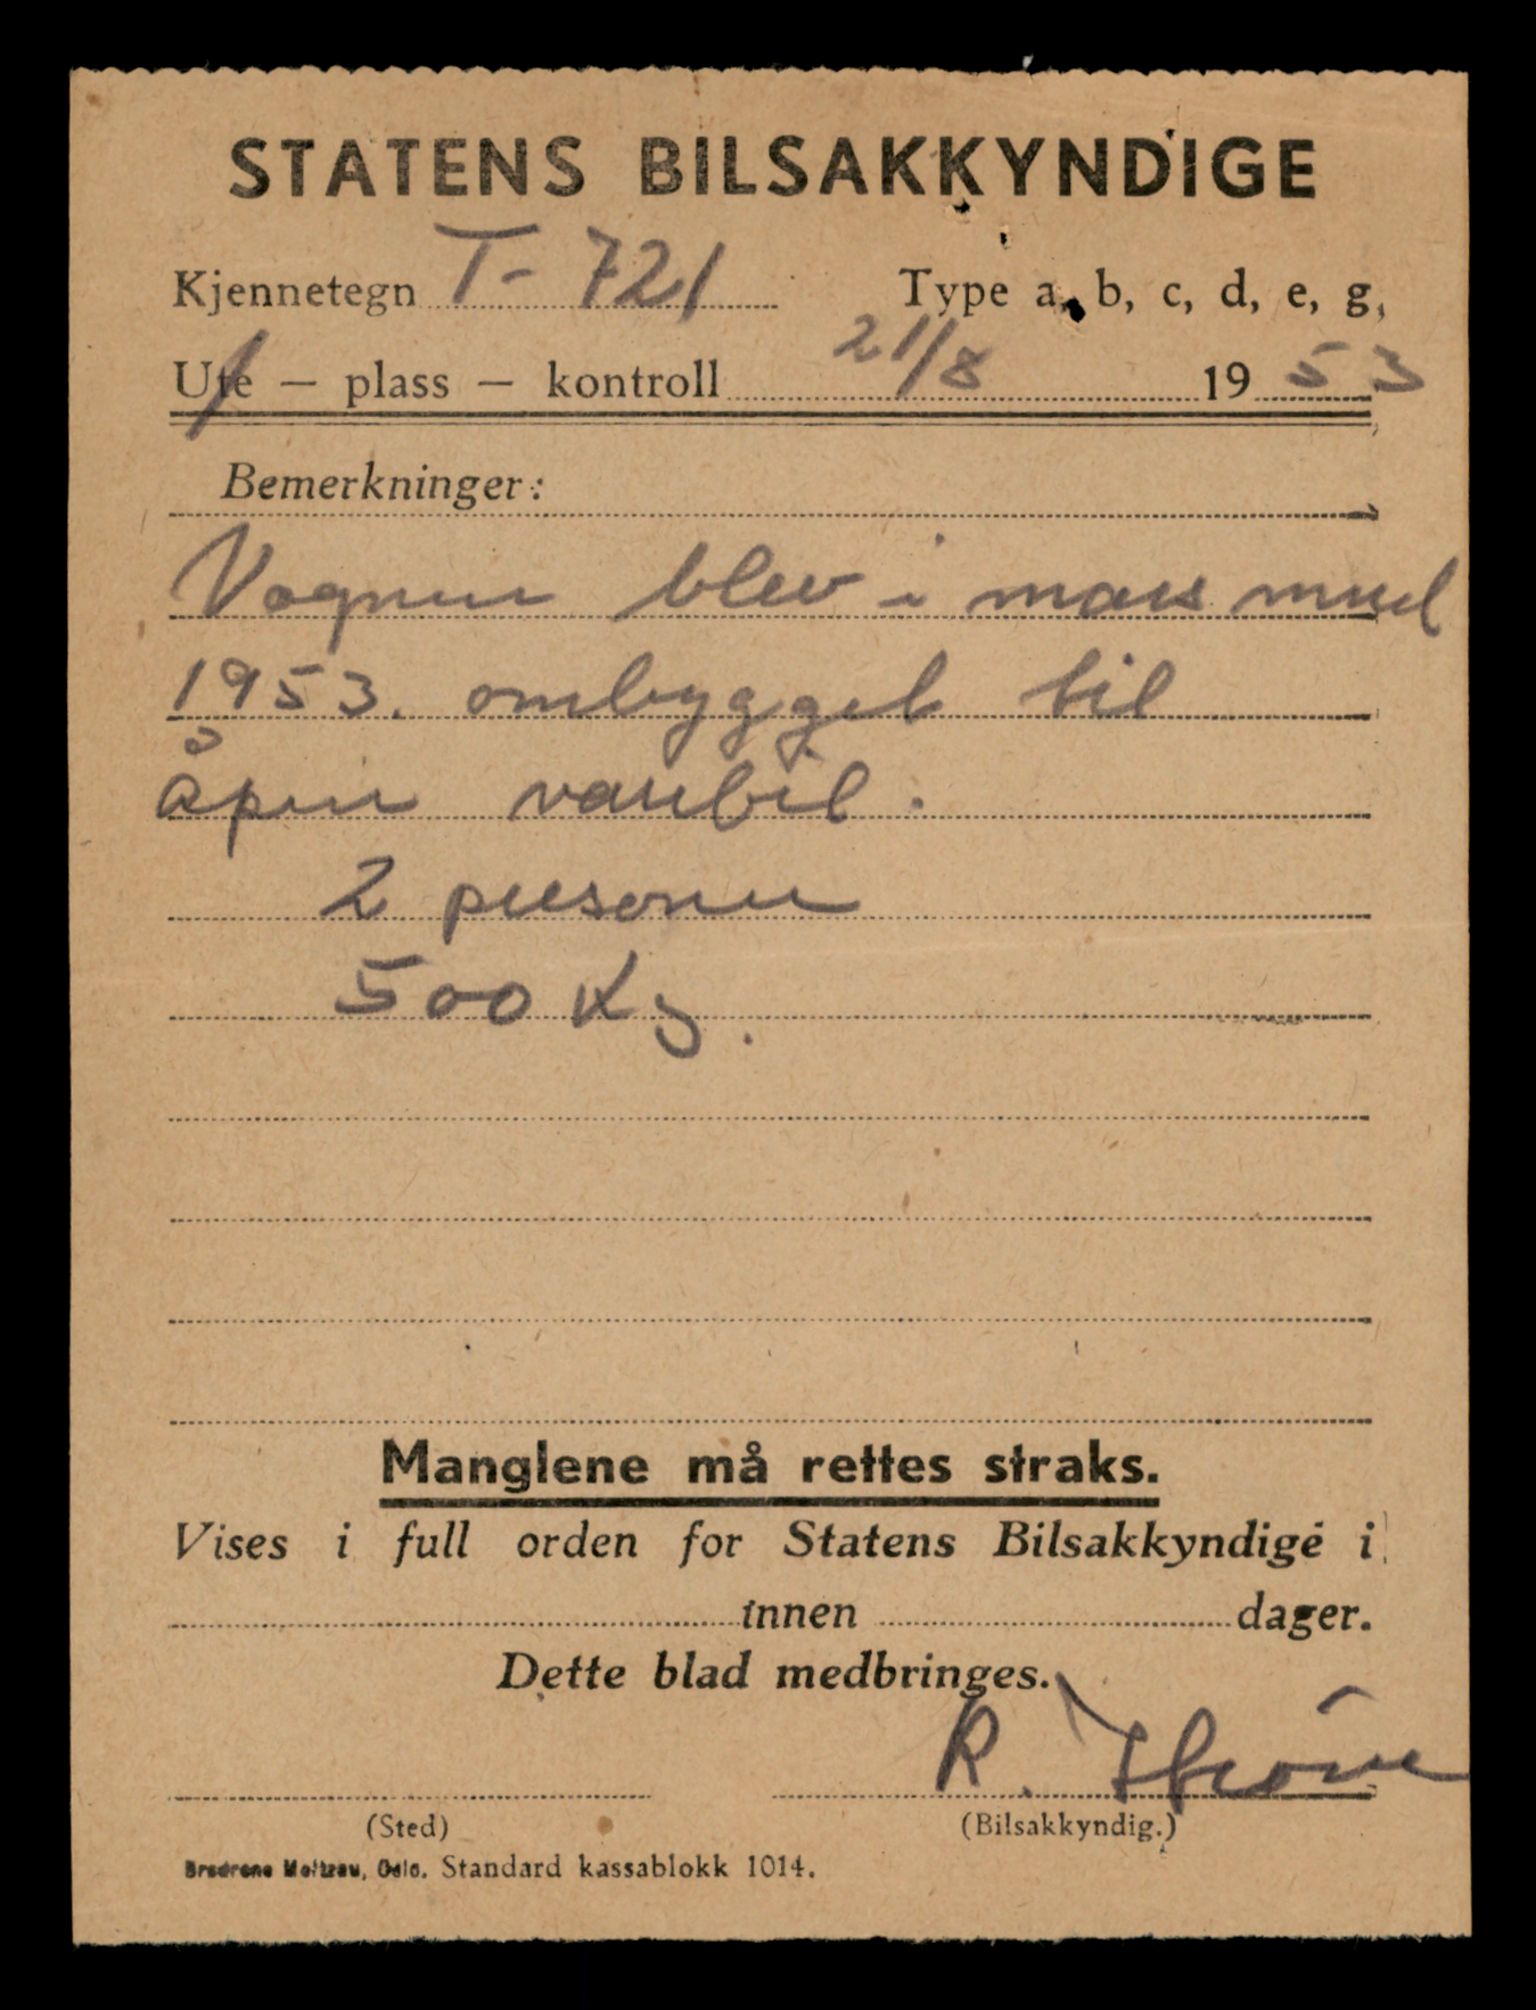 STATENS BILSAKKYNDIGE
Kjennetegn T-721 Type a, b, c, d, e, g,
Ute — plass — kontroll 21/8 1953
Bemerkninger:
Vognen blev i mars mned
1953. ombygget til
åpen varebil.
2 personer
500 Kg.
Manglene må rettes straks.
Vises i full orden for Statens Bilsakkyndige i
innen dager.
Dette blad medbringes.
R.
(Sted) (Bilsakkyndig.)
Brødrene Moltzau, Oslo. Standard kassablokk 1014.